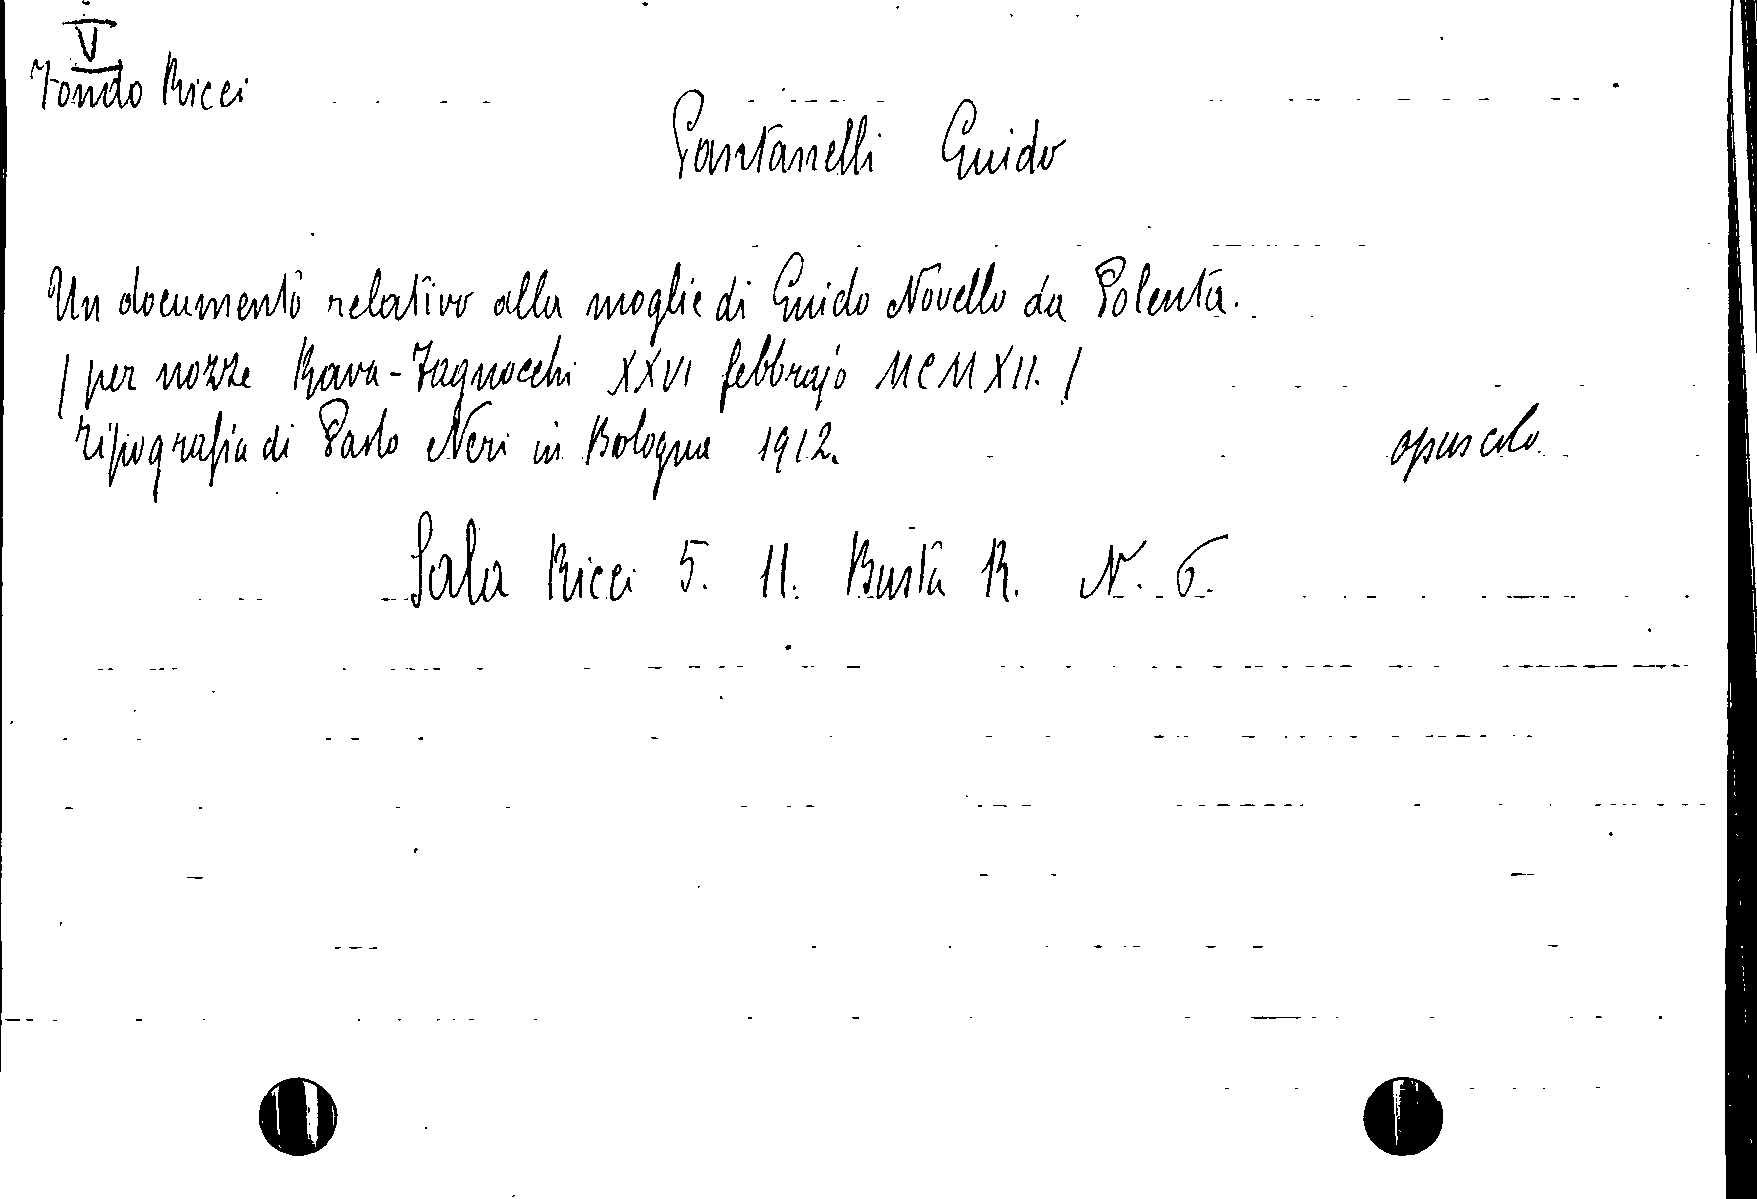 V
Fondo Ricci
Pantanelli Guido
Un documento relativo alla moglie di Guido Novello da Polenta.
/ per nozze Rava-Fagnocchi XXVI febbrajo MCMXII. /
tipografia di Paolo Neri in Bologna 1912.
opuscolo
Sala Ricci 5. 11. Busta R. N. 6.